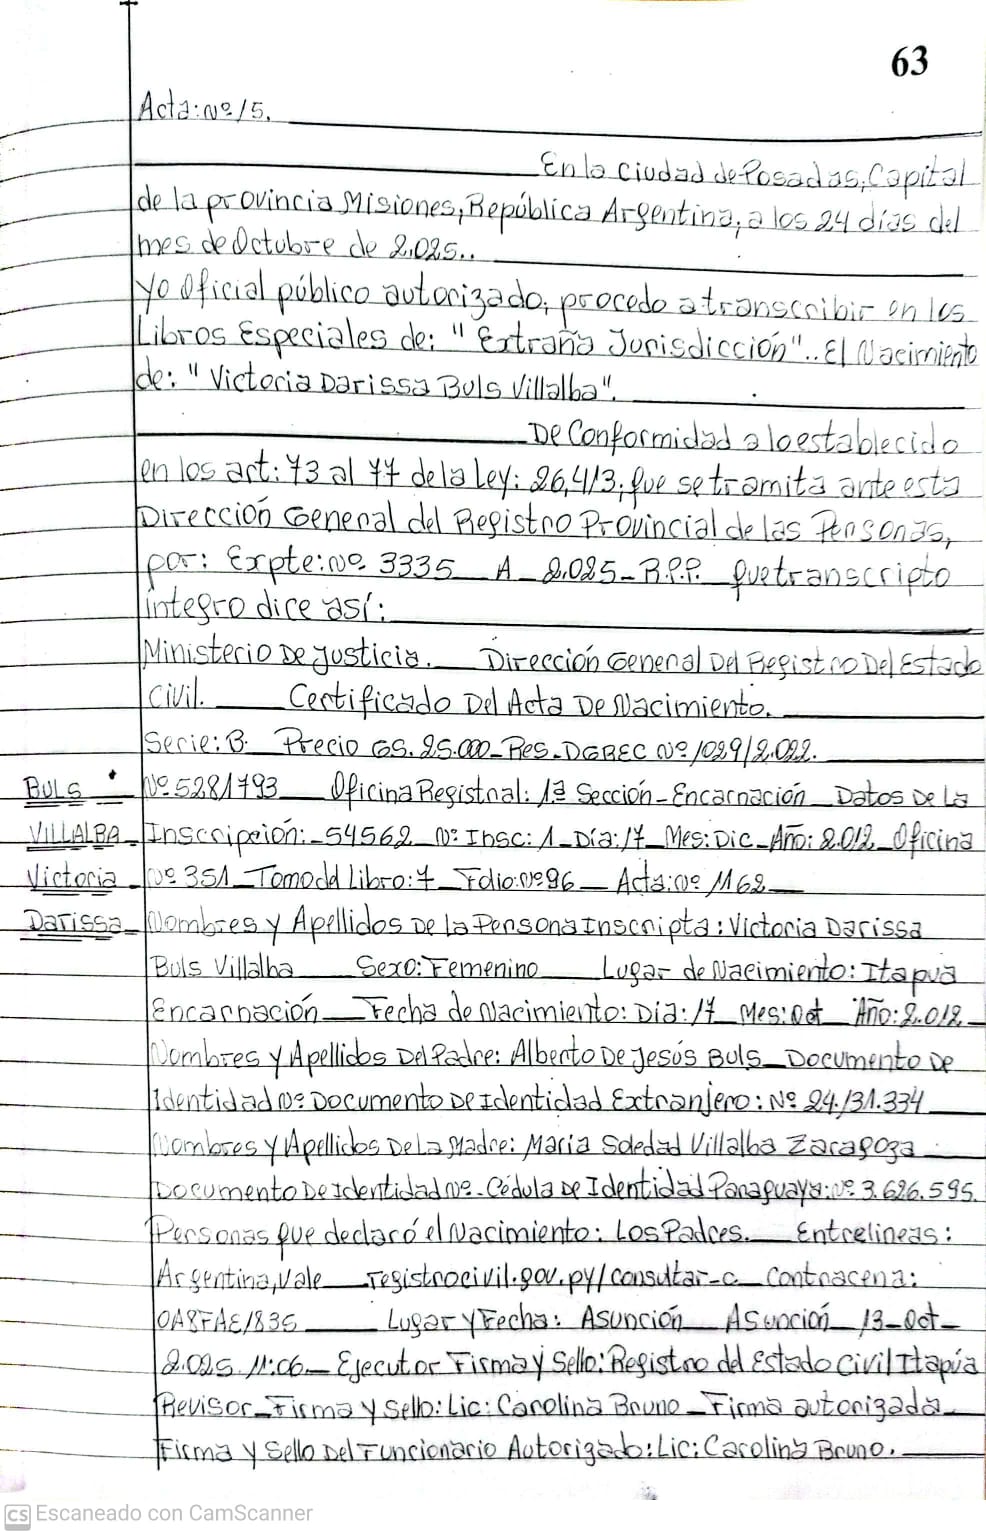 63
Acta: Nº 15.
En la Ciudad de Posadas, Capital
de la provincia Misiones, República Argentina, a los 24 días del
mes de Octubre de 2.025..
Yo Oficial público autorizado, procedo a transcribir en los
Libros Especiales de: "Extraña Jurisdicción".. El Nacimiento
de: "Victoria Darissa Buls Villalba".
De Conformidad a lo establecido
en los art: 73 al 77 de la Ley: 26,413, que se tramita ante esta
Dirección General del Registro Provincial de las Personas,
por: Expte: Nº 3335 _ A _ 2.025 - R.P.P. que transcripto
integro dice así:
Ministerio De Justicia. _ Dirección General Del Registro Del Estado
Civil. _ Certificado Del Acta De Nacimiento.
Serie: B. Precio GS. 25.000 - Res - DGREC Nº 1029/2.022.
Nº 5281793 _ Oficina Registral: 1ª Sección - Encarnación _ Datos De La
Inscripción: - 54562 _ Nº Insc: 1 _ Día: 17 _ Mes: Dic _ Año: 2.012 _ Oficina
Nº 351 _ Tomo del Libro: 7 _ Folio: Nº 96 _ Acta: Nº 1162 _
Nombres y Apellidos De la Persona Inscripta: Victoria Darissa
Buls Villalba _ Sexo: Femenino _ Lugar de Nacimiento: Itapua
Encarnación _ Fecha de Nacimiento: Dia: 17 _ Mes: Oct _ Año: 2.012 _
Nombres y Apellidos Del Padre: Alberto De Jesús Buls _ Documento De
Identidad Nº Documento De Identidad Extranjero: Nº 24.131.334 _
Nombres y Apellidos De La Madre: Maria Soledad Villalba Zaragoza
Documento De Identidad Nº - Cédula De Identidad Paraguaya: Nº 3.626.595.
Personas que declaró el Nacimiento: Los Padres. _ Entrelineas:
Argentina, Vale _ registrocivil.gov.py/consultar-c _ Contracena:
0A8FAE1836 _ Lugar y Fecha: Asunción _ Asunción _ 13 - Oct -
2.025 11:06 _ Ejecutor Firma y Sello: Registro del Estado Civil Itapúa
Revisor _ Firma y Sello: Lic: Carolina Bruno _ Firma autorizada _
Firma y Sello Del Funcionario Autorizado: Lic: Carolina Bruno.
BULS
VILLALBA
Victoria
Darissa
CS Escaneado con CamScanner